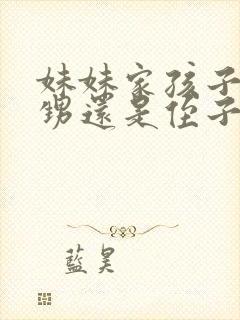 妹妹家孩子
甥還是侄子
藍昊